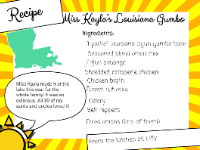 Recipe
Miss Kayla's Louisiana Gumbo
Ingredients:
Louisiana cajun gumbo base
Seasoned blend onion mix
Cajun sausage
Shredded rotisserie chicken
Chicken broth
Celery
Bell peppers
Miss Kayla made it at the
lake this year for the
whole family! It was so
delicious. All of my
aunts and uncles loved it!
From the kitchen of: